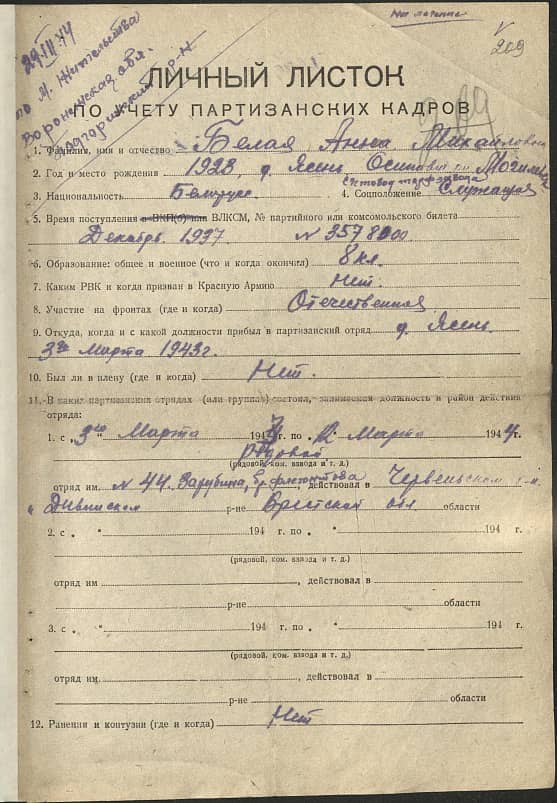 На лечение
209
29/III 44
по м. жительства
Воронежская обл.
ЛИЧНЫЙ ЛИСТОК
ПО УЧЕТУ ПАРТИЗАНСКИХ КАДРОВ
1. Фамилия, имя и отчество Белая Анна Михайловна
2. Год и место рождения 1923, д. Ясень Осипович
3. Национальность Белорус. 4. Соцположение Служащая
5. Время поступления в ВКП(б) или ВЛКСМ, № партийного или комсомольского билета
Декабрь 1937 N 3578000
6. Образование: общее и военное (что и когда окончил) 8 кл.
7. Каким РВК и когда призван в Красную Армию Нет.
8. Участие на фронтах (где и когда) Отечественная
9. Откуда, когда и с какой должности прибыл в партизанский отряд д. Ясень.
3го Марта 1943 г.
10. Был ли в плену (где и когда) Нет.
11. В каких партизанских отрядах (или группах) состоял, занимаемая должность и район действия
отряда:
1. с „3го" Марта 1943 г. по Марта 1944 г.
Рядовой
(рядовой, ком. взвода и т. д.)
отряд им. N 44. действовал в Червеньском
Дивинском р-не Брестской обл области
2. с „ " 194 г. по „ " 194 г.
(рядовой, ком. взвода и т. д.)
отряд им , действовал в
р-не области
3. с „ " 194 г. по „ " 194 г.
(рядовой, ком. взвода и т. д.)
отряд им. , действовал в
р-не области
12. Ранения и контузии (где и когда) Нет